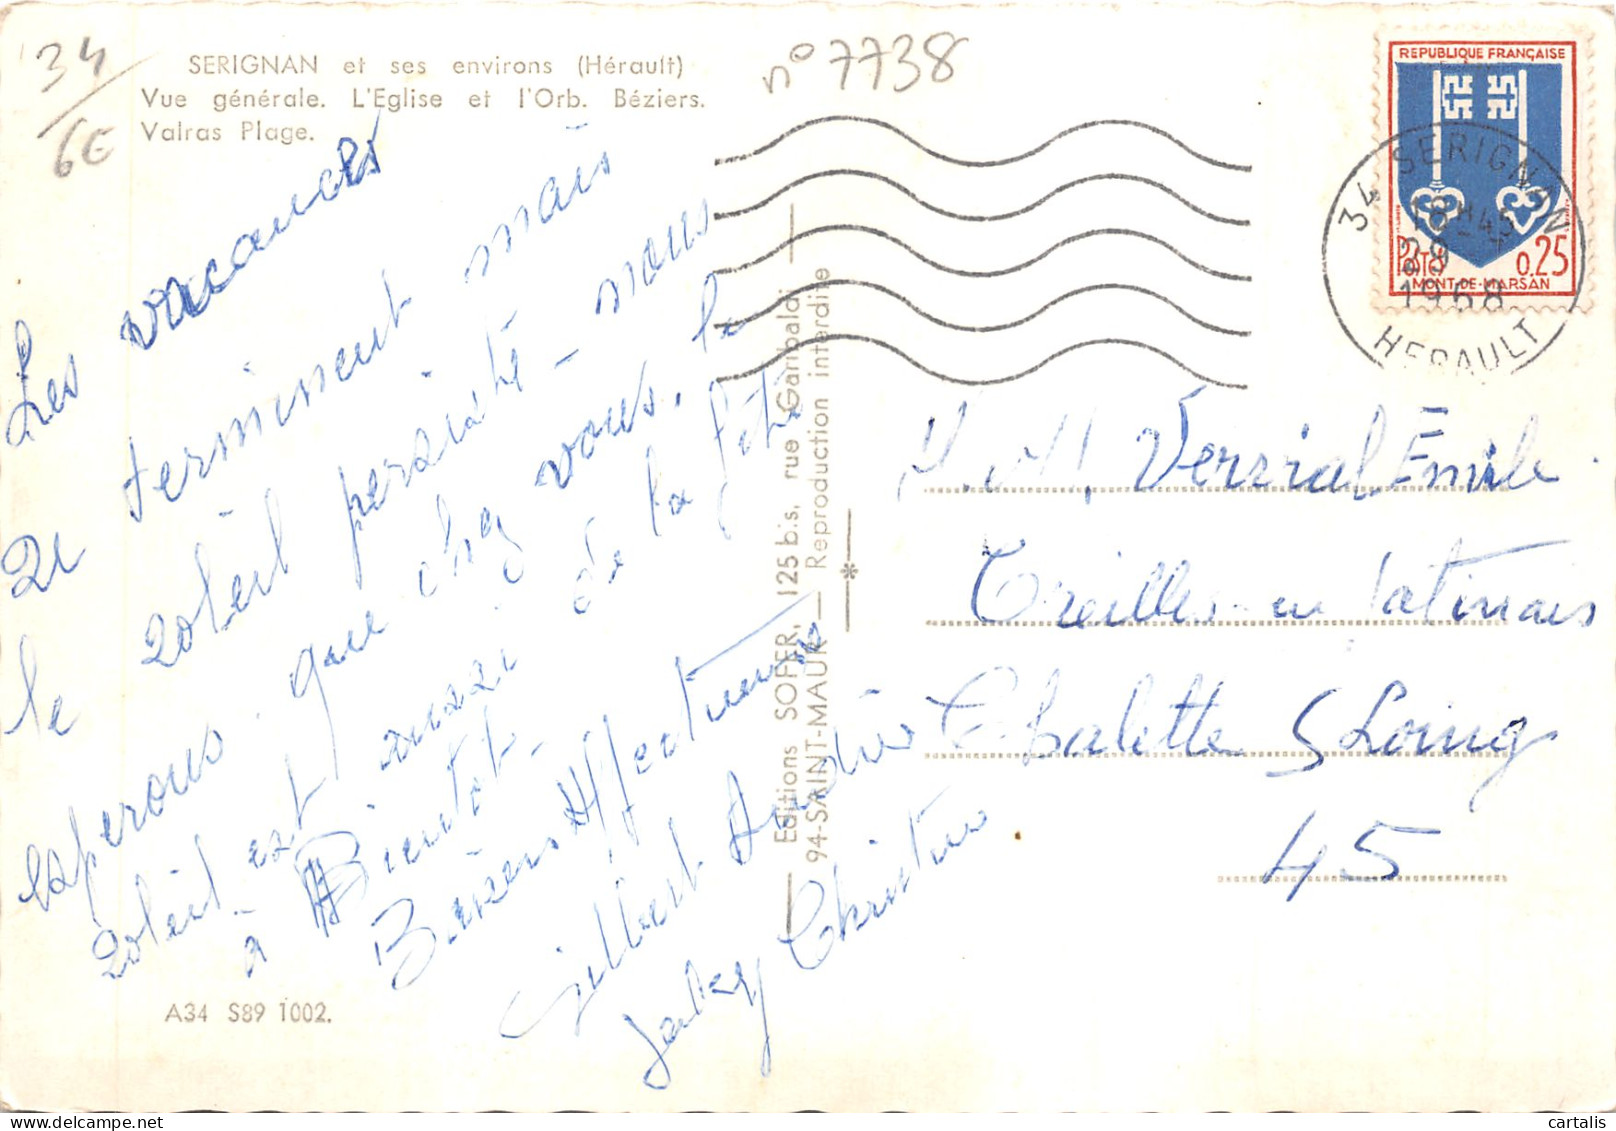 34/6€
n° 7738
SERIGNAN et ses environs (Hérault)
Vue générale. L'Eglise et l'Orb. Béziers.
Valras Plage.
Les vacances
se terminent mais
le soleil persiste - nous
esperons que chez vous, le
soleil est aussi de la fête
à Bientôt.
Baisers Affectueux
Gilbert Andrée
Christine
A34 S89 1002.
Editions SOFER, 125 bis, rue Garibaldi
94-SAINT-MAUR — Reproduction interdite
REPUBLIQUE FRANÇAISE
Postes 0,25
MONT-DE-MARSAN
34 SERIGNAN
18H45
29
1968
HERAULT
Emile
Treilles en Gatinais
Chalette S Loing
45
cartalis